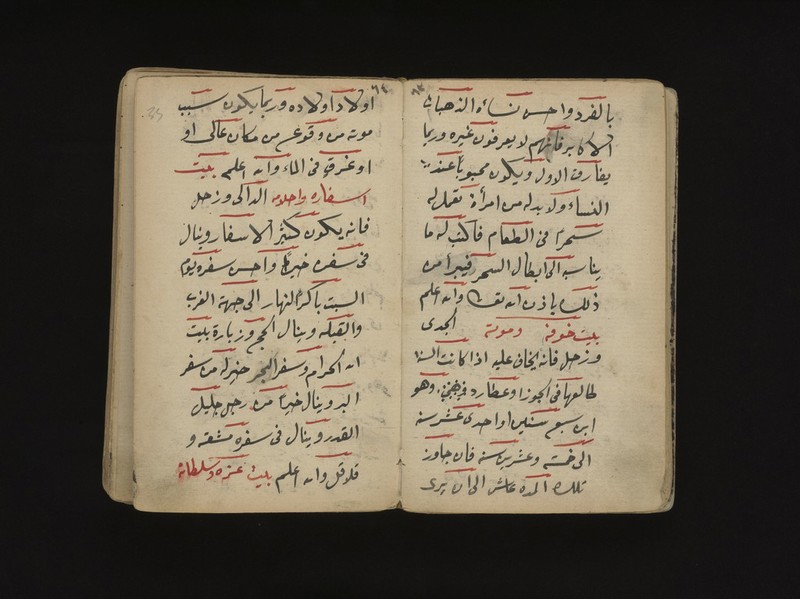 بالفرد واحسن نساءه الذهبات
الاكابر فانهم لا يعرفون غيره وربما
يفارق الاول ويكون محبوبا عند
النساء ولا بد له من امرأة تعمل له
سحرا فى الطعام فاكتب له ما
يناسبه الى ابطال السحر فيبرأ من
ذلك باذن الله تعالى والله اعلم
بيت خوفه وموته الجدى
وزحل فانه يخاف عليه اذا كانت السنة
طالعها فى الجوزا وعطارد وهو
ابن سبع سنين او احدى عشر سنه
الى خمسة وعشرين سنه فان جاوز
تلك المده عاش الى ان يرى
٦٣
اولاد اولاده وربما يكون سبب
موته من وقوعه من مكان عالى او
او غرق فى الماء والله اعلم بيت
اسفاره واحلامه الدالى وزحل
فانه يكون كثير الاسفار وينال
فى سفره خيرا واحسن سفره يوم
السبت باكر النهار الى جهة الغرب
والقبله وينال الحج وزيارة بيت
الله الحرام وسفر البحر خير له من سفر
البر وينال خيرا من رجل جليل
القدر وينال فى سفره مشقه و
قلاقل والله اعلم بيت عزه وسلطانه